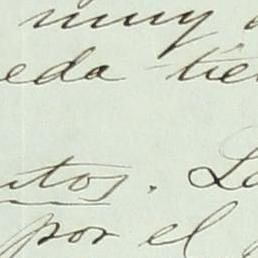 muy
eda tie
ntos. Lo
por el